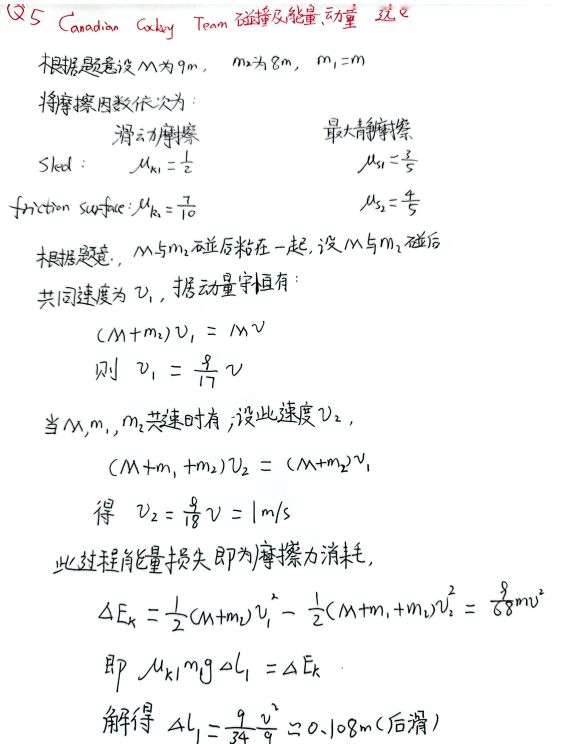 Q5 Canadian Cockey Team 碰撞及能量、动量 难
根据题意设M为9m, m₂为8m, m₁=m
将摩擦因数依次为:
滑动摩擦 最大静摩擦
Sled: μk₁=1/2 μs₁=3/5
friction surface: μk₂=7/10 μs₂=4/5
根据题意, M与m₂碰后粘在一起,设M与m₂碰后
共同速度为v₁,据动量守恒有:
(M+m₂)v₁ = Mv
则 v₁ = 9/17 v
当M,m₁,m₂共速时有,设此速度v₂,
(M+m₁+m₂)v₂ = (M+m₂)v₁
得 v₂ = 9/18 v = 1m/s
此过程能量损失即为摩擦力消耗,
ΔEk = 1/2(M+m₂)v₁² - 1/2(M+m₁+m₂)v₂² = 9/68 mv²
即 μk₁m₁gΔL₁ = ΔEk.
解得 ΔL₁ = 9/34 v²/g ≈ 0.108m(后滑)